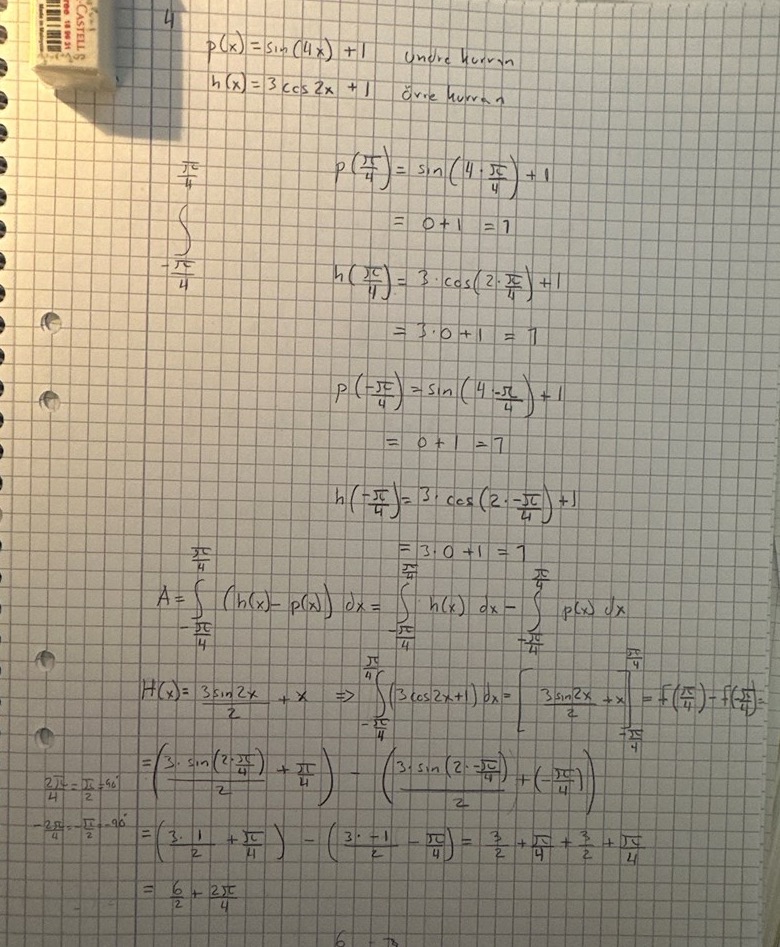 CASTELL
4
p(x) = sin(4x) + 1 undre kurvan
h(x) = 3 cos 2x + 1 övre kurvan
p(π/4) = sin(4·π/4) + 1
= 0 + 1 = 1
∫_{-π/4}^{π/4}
h(π/4) = 3·cos(2·π/4) + 1
= 3·0 + 1 = 1
p(-π/4) = sin(4·-π/4) + 1
= 0 + 1 = 1
h(-π/4) = 3·cos(2·-π/4) + 1
= 3·0 + 1 = 1
A = ∫_{-π/4}^{π/4} (h(x) - p(x)) dx = ∫_{-π/4}^{π/4} h(x) dx - ∫_{-π/4}^{π/4} p(x) dx
H(x) = 3 sin 2x/2 + x ⇒ ∫_{-π/4}^{π/4} (3 cos 2x + 1) dx = [3 sin 2x/2 + x]_{-π/4}^{π/4} = f(π/4) - f(-π/4) =
= (3·sin(2·π/4)/2 + π/4) - (3·sin(2·-π/4)/2 + (-π/4))
2π/4 = π/2 = 90°
-2π/4 = -π/2 = -90°
= (3·1/2 + π/4) - (3·-1/2 - π/4) = 3/2 + π/4 + 3/2 + π/4
= 6/2 + 2π/4